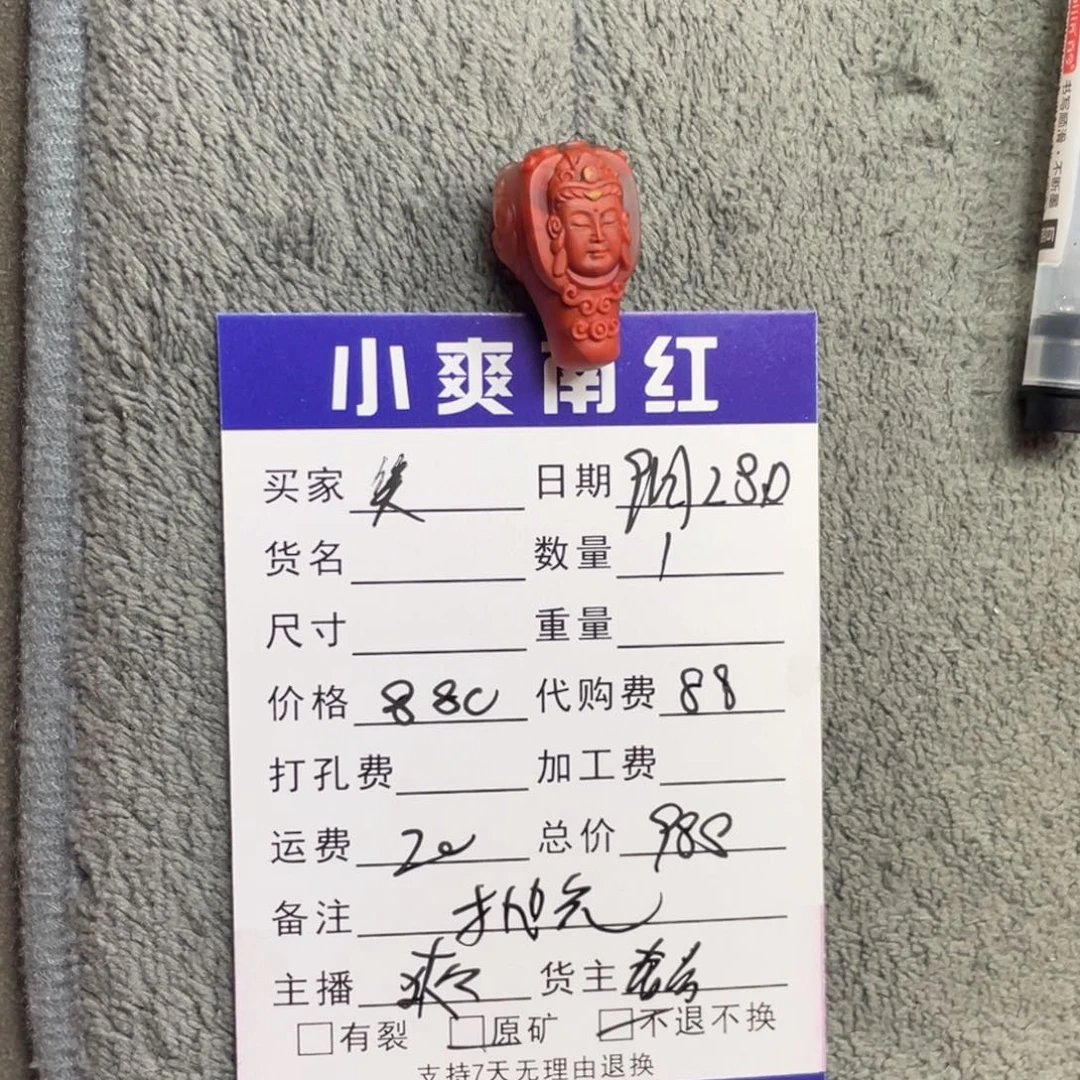 小爽南红
买家 日期
货名 数量 1
尺寸 重量
价格 880 代购费 88
打孔费 加工费
运费 20 总价 988
备注 抛光
主播 爽 货主
有裂 原矿 不退不换
支持7天无理由退换
书写顺滑·不断墨